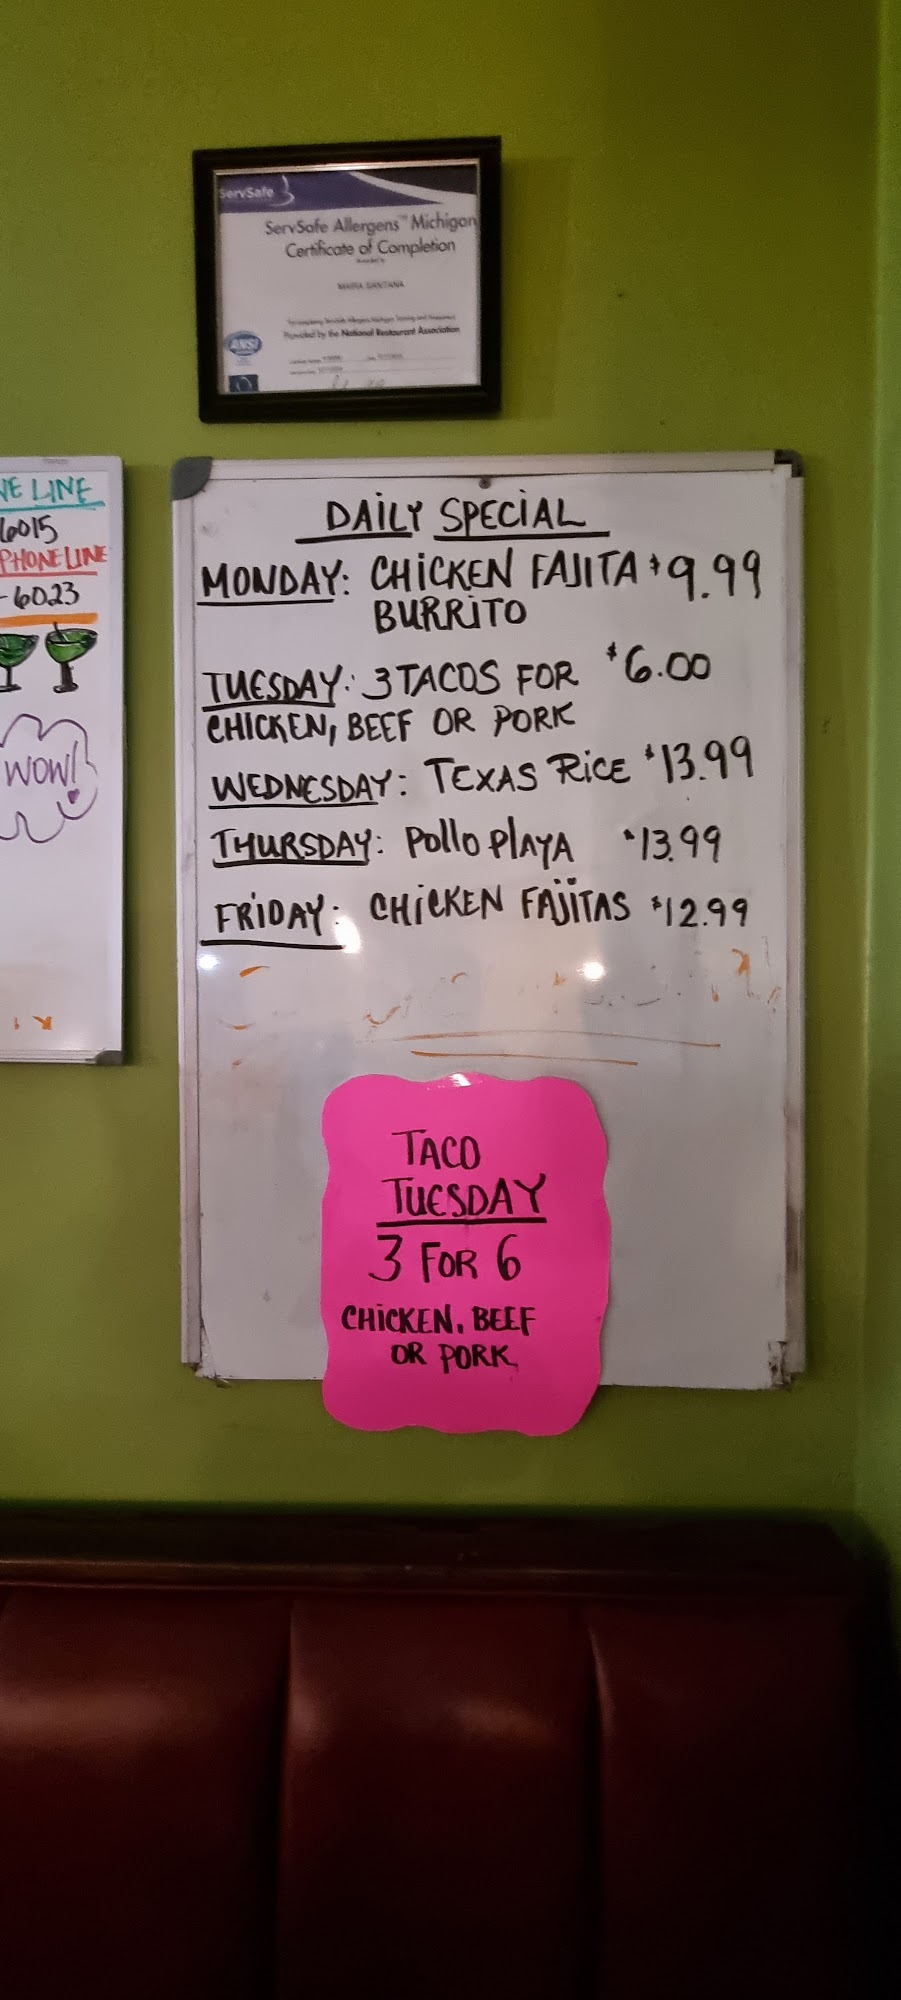 ServSafe
ServSafe Allergens™ Michigan
Certificate of Completion
MARIA SANTANA
Provided by the National Restaurant Association
ANSI
NE LINE
6015
PHONE LINE
-6023
WOW!
DAILY SPECIAL
MONDAY: CHICKEN FAJITA $9.99
BURRITO
TUESDAY: 3 TACOS FOR $6.00
CHICKEN, BEEF OR PORK
WEDNESDAY: TEXAS RICE $13.99
THURSDAY: POLLO PLAYA $13.99
FRIDAY: CHICKEN FAJITAS $12.99
TACO
TUESDAY
3 FOR 6
CHICKEN, BEEF
OR PORK